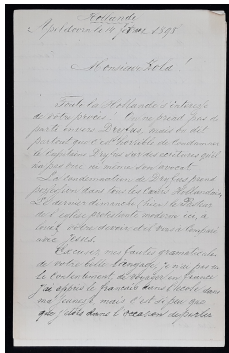 Hollande
Apeldoorn le 14 1898
Monsieur Zola!
Toute la Hollande s'intéresse
de votre procès! On ne prend pas de
parti envers Dreyfus, mais on dit
partout que c'est horrible de condamner
le Capitaine Dreyfus sur des écritures qu'il
ni même son avocat.
La condamnation de Dreyfus prend
dans tous les Hollandais
Le dernier dimanche, le
de l'église protestante moderne ici, a
votre et vous a comparé
avec Jésus.
Excusez mes fautes grammaticales
de votre belle langage, je n'ai pas eu
le contentement de en France
J'ai appris le français dans l'école dans
ma jeunesse, mais c'est si peu que
j'étais dans l'occasion de parler